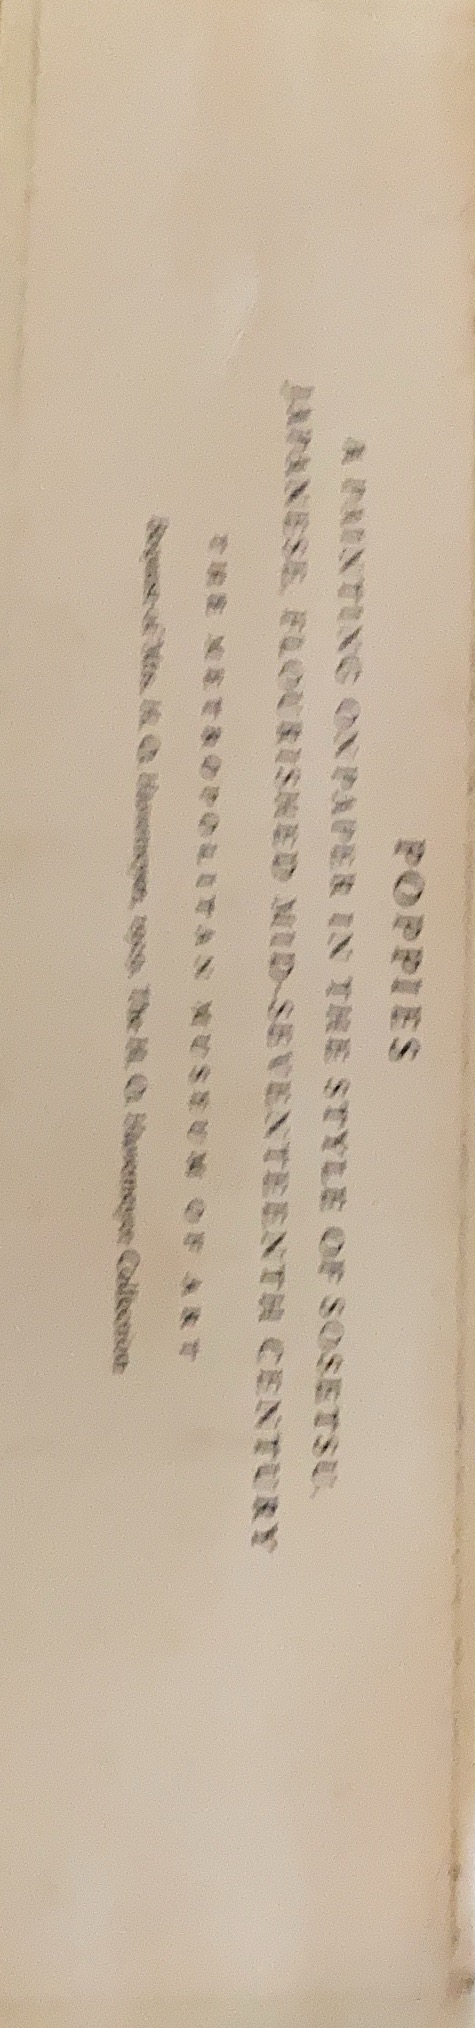 POPPIES
A PAINTING ON PAPER IN THE STYLE OF SOSETSU,
JAPANESE, FLOURISHED MID-SEVENTEENTH CENTURY
THE METROPOLITAN MUSEUM OF ART
Bequest of Mrs. H. O. Havemeyer, 1929. The H. O. Havemeyer Collection